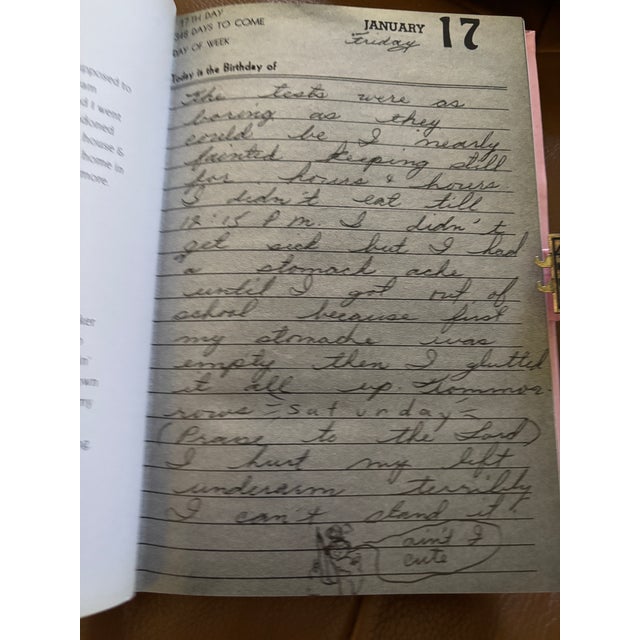 pposed to
am
d I went
doned
house &
home in
more.
ker
n
n'
own
my
ng.
17TH DAY
348 DAYS TO COME
DAY OF WEEK
JANUARY 17
Friday
Today is the Birthday of
The tests were as
boring as they
could be I nearly
fainted keeping still
for hours & hours.
I didn't eat till
12:15 P.M. I didn't
get sick but I had
a stomach ache
until I got out of
school because first
my stomache was
empty then I glutted
it all up. Tommor-
rows = Saturday =
(Praise to the Lord)
I hurt my left
underarm terribly
I can't stand it
ain't I
cute